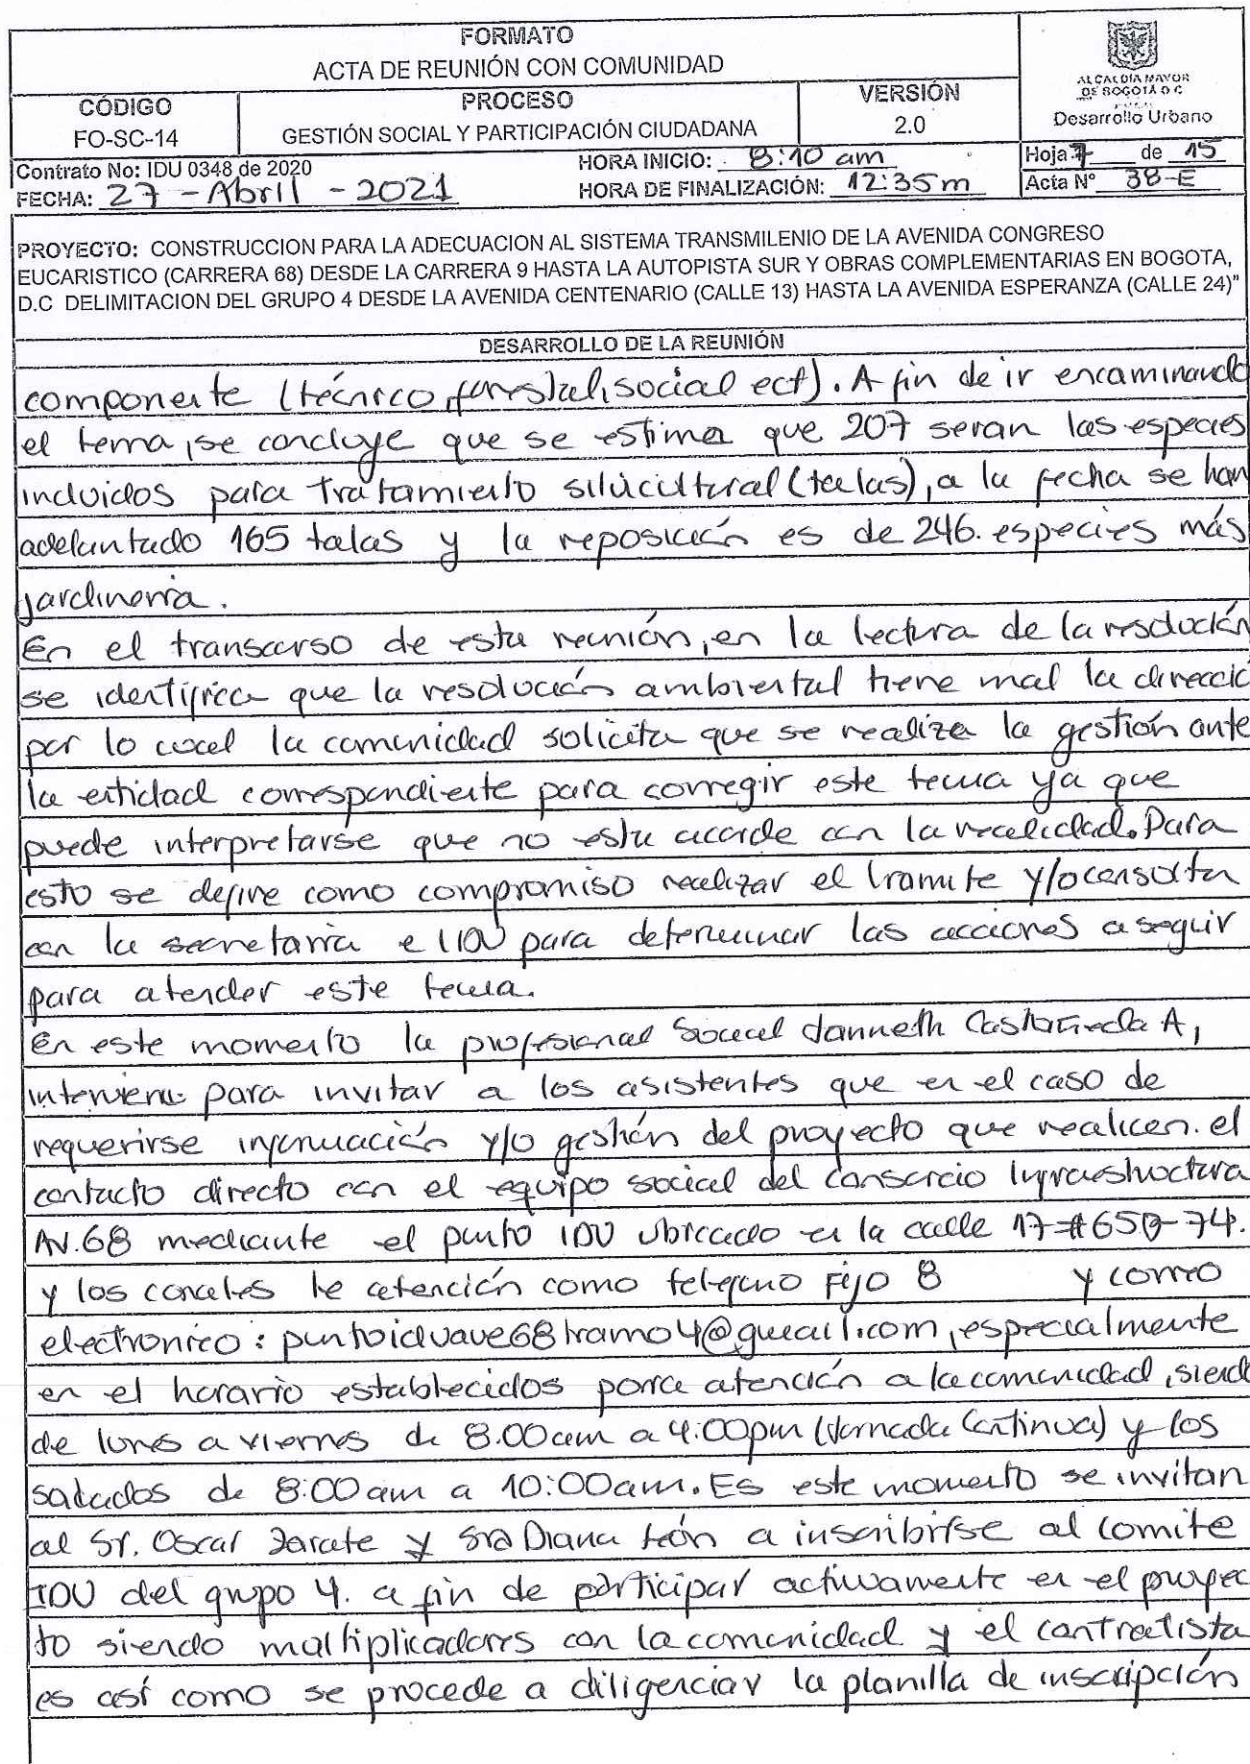 FORMATO
ACTA DE REUNIÓN CON COMUNIDAD
ALCALDÍA MAYOR
DE BOGOTÁ D C
Desarrollo Urbano
CÓDIGO
FO-SC-14
PROCESO
GESTIÓN SOCIAL Y PARTICIPACIÓN CIUDADANA
VERSIÓN
2.0
Contrato No: IDU 0348 de 2020
FECHA: 27 - Abril - 2021
HORA INICIO: 8:10 am
HORA DE FINALIZACIÓN: 12:35m
Hoja 7 de 15
Acta N° 38-E
PROYECTO: CONSTRUCCION PARA LA ADECUACION AL SISTEMA TRANSMILENIO DE LA AVENIDA CONGRESO
EUCARISTICO (CARRERA 68) DESDE LA CARRERA 9 HASTA LA AUTOPISTA SUR Y OBRAS COMPLEMENTARIAS EN BOGOTA,
D.C DELIMITACION DEL GRUPO 4 DESDE LA AVENIDA CENTENARIO (CALLE 13) HASTA LA AVENIDA ESPERANZA (CALLE 24)"
DESARROLLO DE LA REUNIÓN
componente (técnico, forestal, social ect). A fin de ir encaminando
el tema, se concluye que se estima que 207 seran las especies
incluidos para tratamiento silvicultural (talas), a la fecha se han
adelantado 165 talas y la reposición es de 246. especies más
jardineria.
En el transcurso de esta reunión, en la lectura de la resolución
se identifica que la resolución ambiental tiene mal la direcció
por lo cual la comunidad solicita que se realiza la gestión ante
la entidad correspondiente para corregir este tema ya que
puede interpretarse que no esta acorde con la realidad. Para
esto se define como compromiso realizar el tramite y/o consulta
con la secretaria e IDU para determinar las acciones a seguir
para atender este tema.
En este momento la profesional Social Janneth Castañeda A,
interviene para invitar a los asistentes que en el caso de
requerirse información y/o gestión del proyecto que realicen. el
contacto directo con el equipo social del Consorcio Infraestructura
AV.68 mediante el punto IDU ubicado en la calle 17 # 65B-74.
y los canales de atención como telefono Fijo 8 y correo
electronico: puntoiduave68tramo4@gmail.com, especialmente
en el horario establecidos para atención a la comunidad, siend
de lunes a viernes de 8:00am a 4:00pm (Jornada Continua) y los
sabados de 8:00am a 10:00am. Es este momento se invitan
al Sr. Oscar Zarate y Sra Diana León a inscribirse al Comite
IDU del grupo 4. a fin de participar activamente en el proyec
to siendo multiplicadores con la comunidad y el contratista
es así como se procede a diligenciar la planilla de inscripción